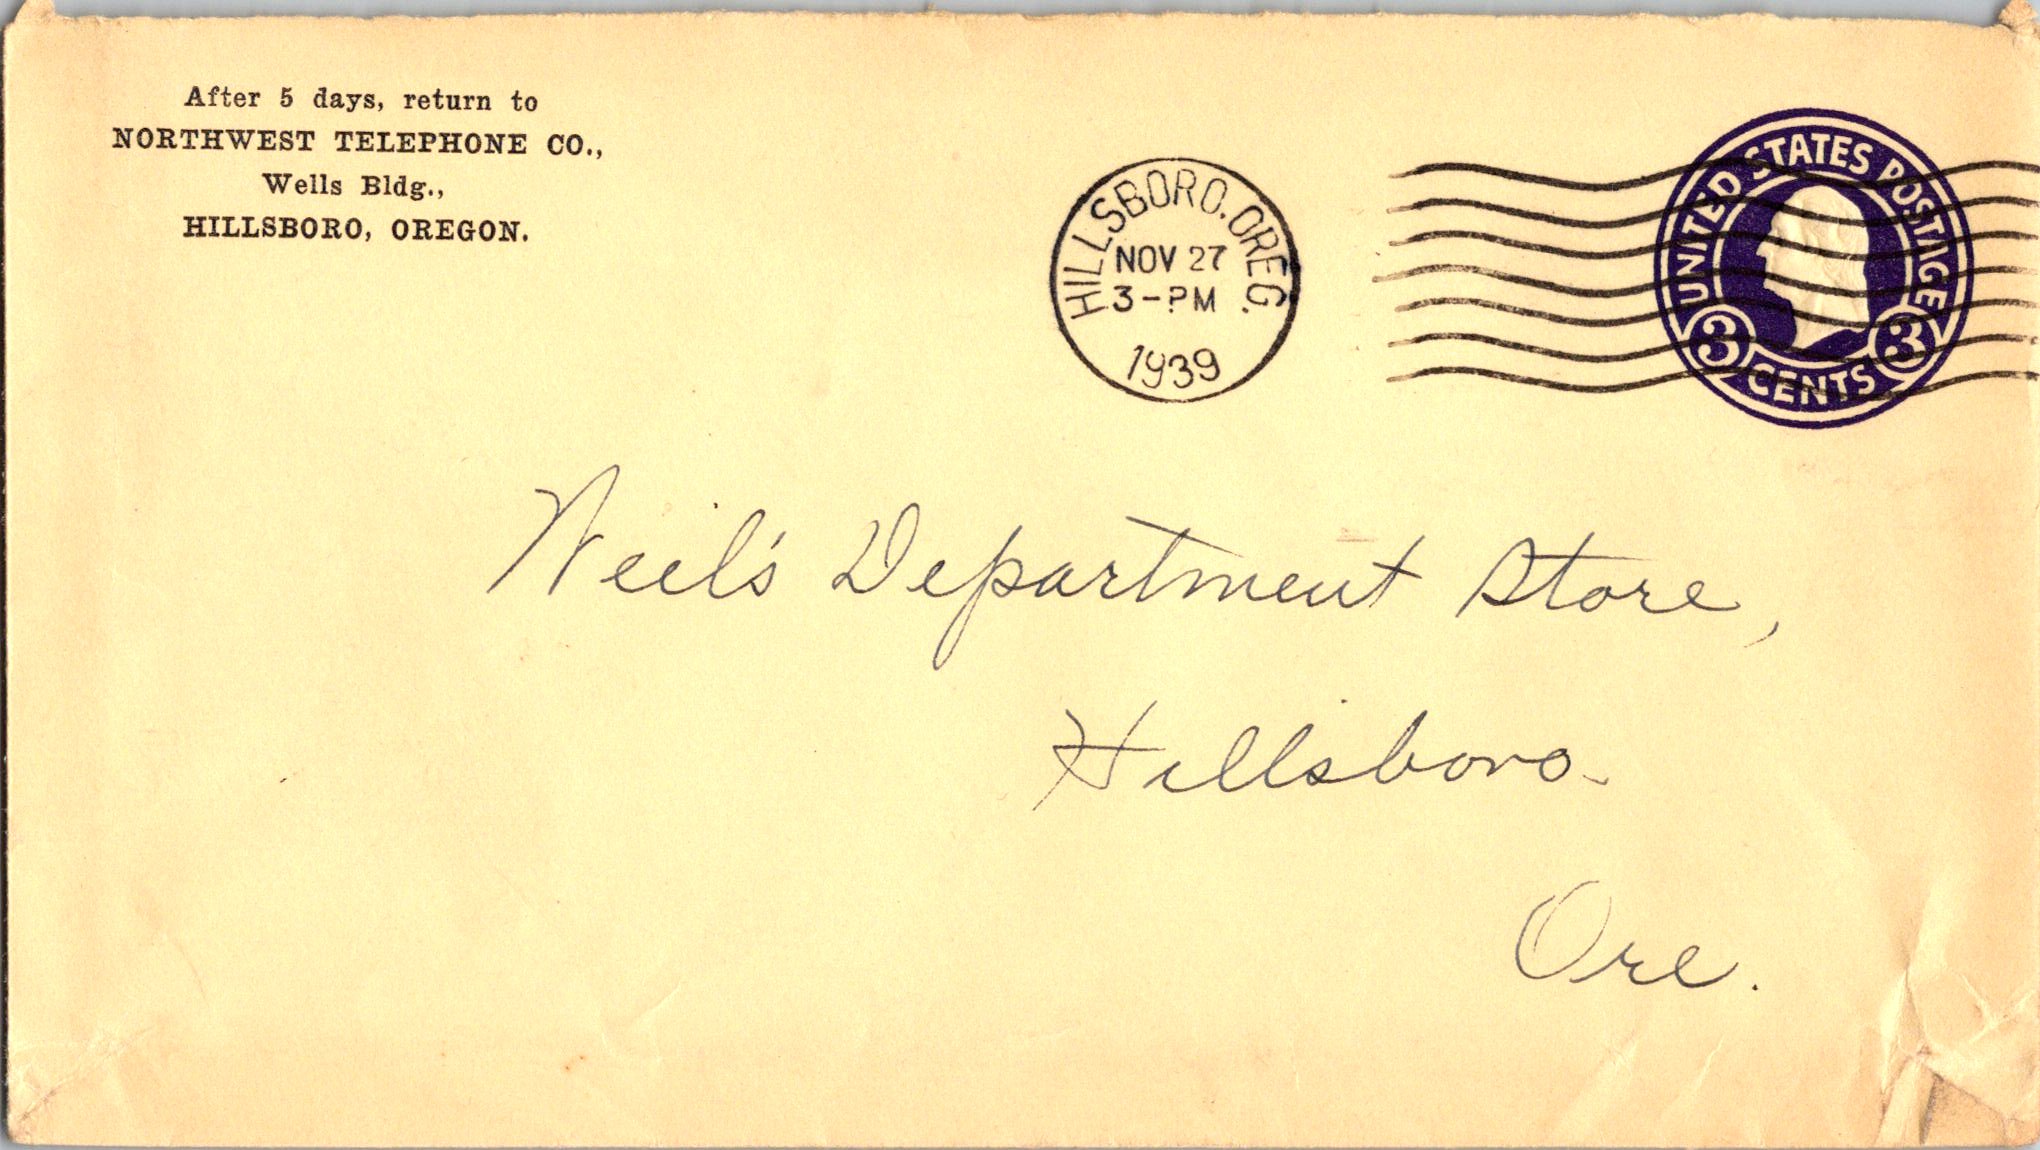 After 5 days, return to
NORTHWEST TELEPHONE CO.,
Wells Bldg.,
HILLSBORO, OREGON.
HILLSBORO, OREG.
NOV 27
3-PM
1939
UNITED STATES POSTAGE
3 CENTS 3
Neil's Department Store,
Hillsboro
Ore.